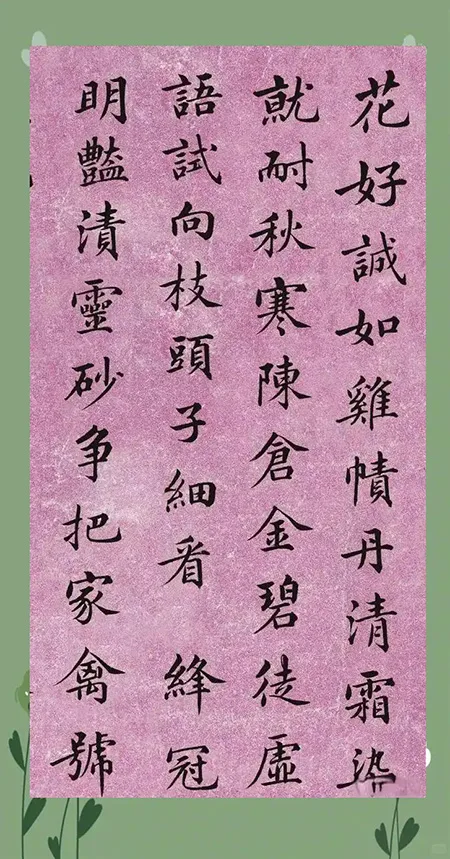 花好誠如雞幘丹清霜染
就耐秋寒陳倉金碧徒虛
語試向枝頭子細看 絳冠
明豔漬靈砂争把家禽號